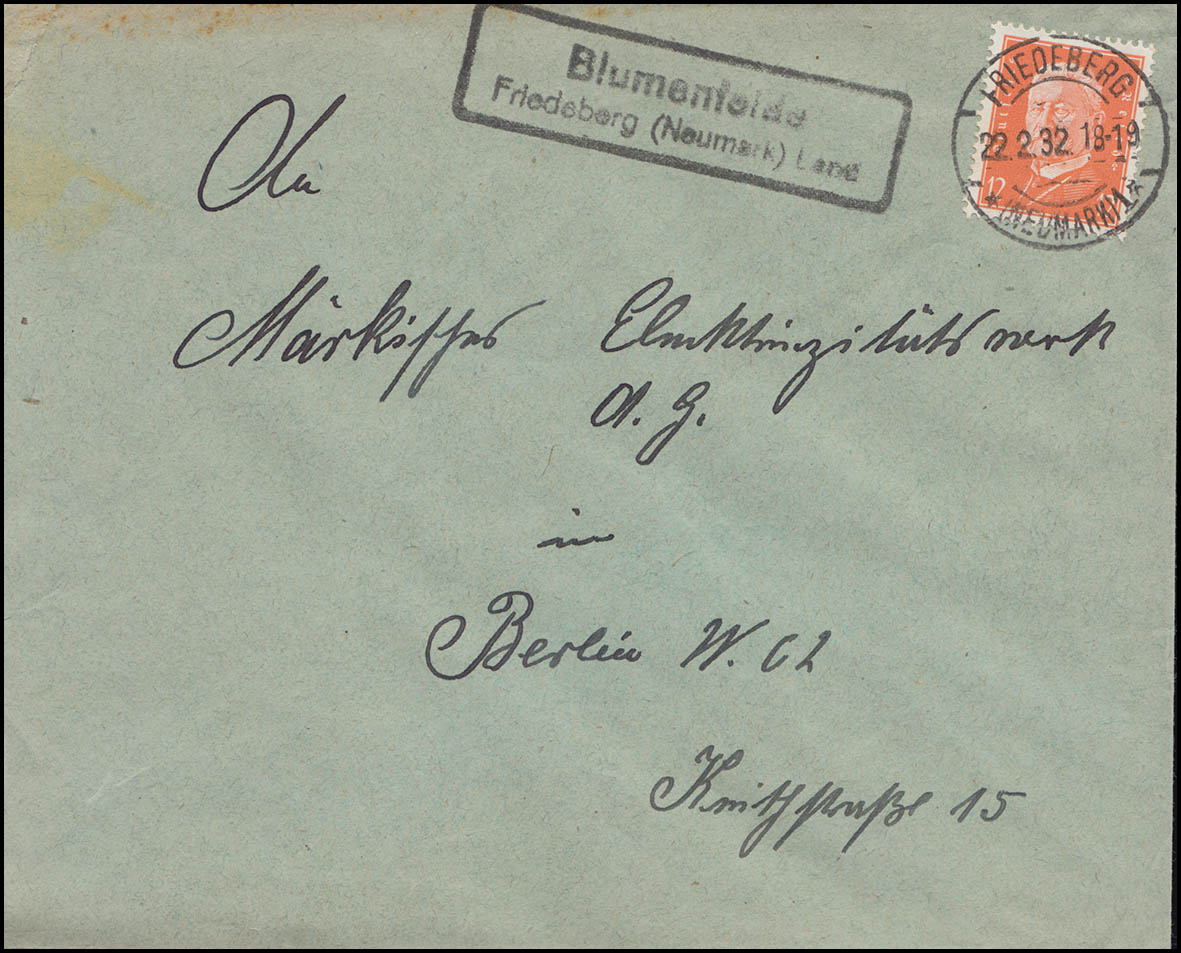 Blumenfelde
Friedeberg (Neumark) Land
FRIEDEBERG
22.2.32. 18-19
* (NEUMARK) 1 *
12 12
An
Märkisches Elektrizitätswerk
A. G.
in
Berlin W. 62
15